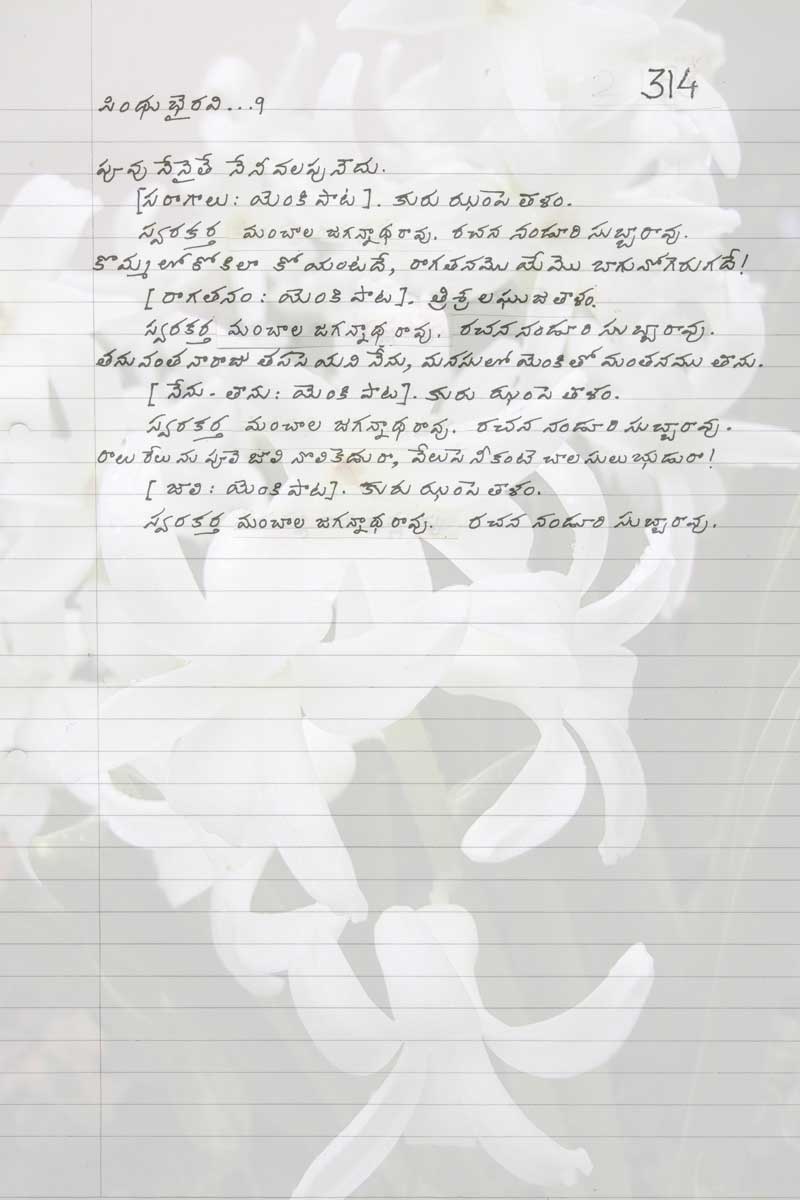 314
సింధుభైరవి...౧
పూవు నేనైతే నేనీ వలపు నెదు.
[సరాగాలు: యెంకి పాట]. కురు ఝంపె తాళం.
స్వరకర్త మంచాల జగన్నాథ రావు. రచన నండూరి సుబ్బారావు.
కొమ్మలో కోకిలా కో యంటదే, రాగతనమొ యేమొ బాగు నోగెరుగదే!
[రాగతనం: యెంకి పాట]. త్రిశ్ర లఘువ తాళం.
స్వరకర్త మంచాల జగన్నాథ రావు. రచన నండూరి సుబ్బారావు.
తనువంత నారాజు తపసె యని నేను, మనసులో యెంకితో మంతనము తాను.
[నేను - తాను: యెంకి పాట]. కురు ఝంపె తాళం.
స్వరకర్త మంచాల జగన్నాథ రావు. రచన నండూరి సుబ్బారావు.
రాలు రేలును పూలె జాలి నొలికెదురా, వేలుపె నీకంటె చాల సులుభుడురా!
[జాలి: యెంకి పాట]. కురు ఝంపె తాళం.
స్వరకర్త మంచాల జగన్నాథ రావు. రచన నండూరి సుబ్బారావు.